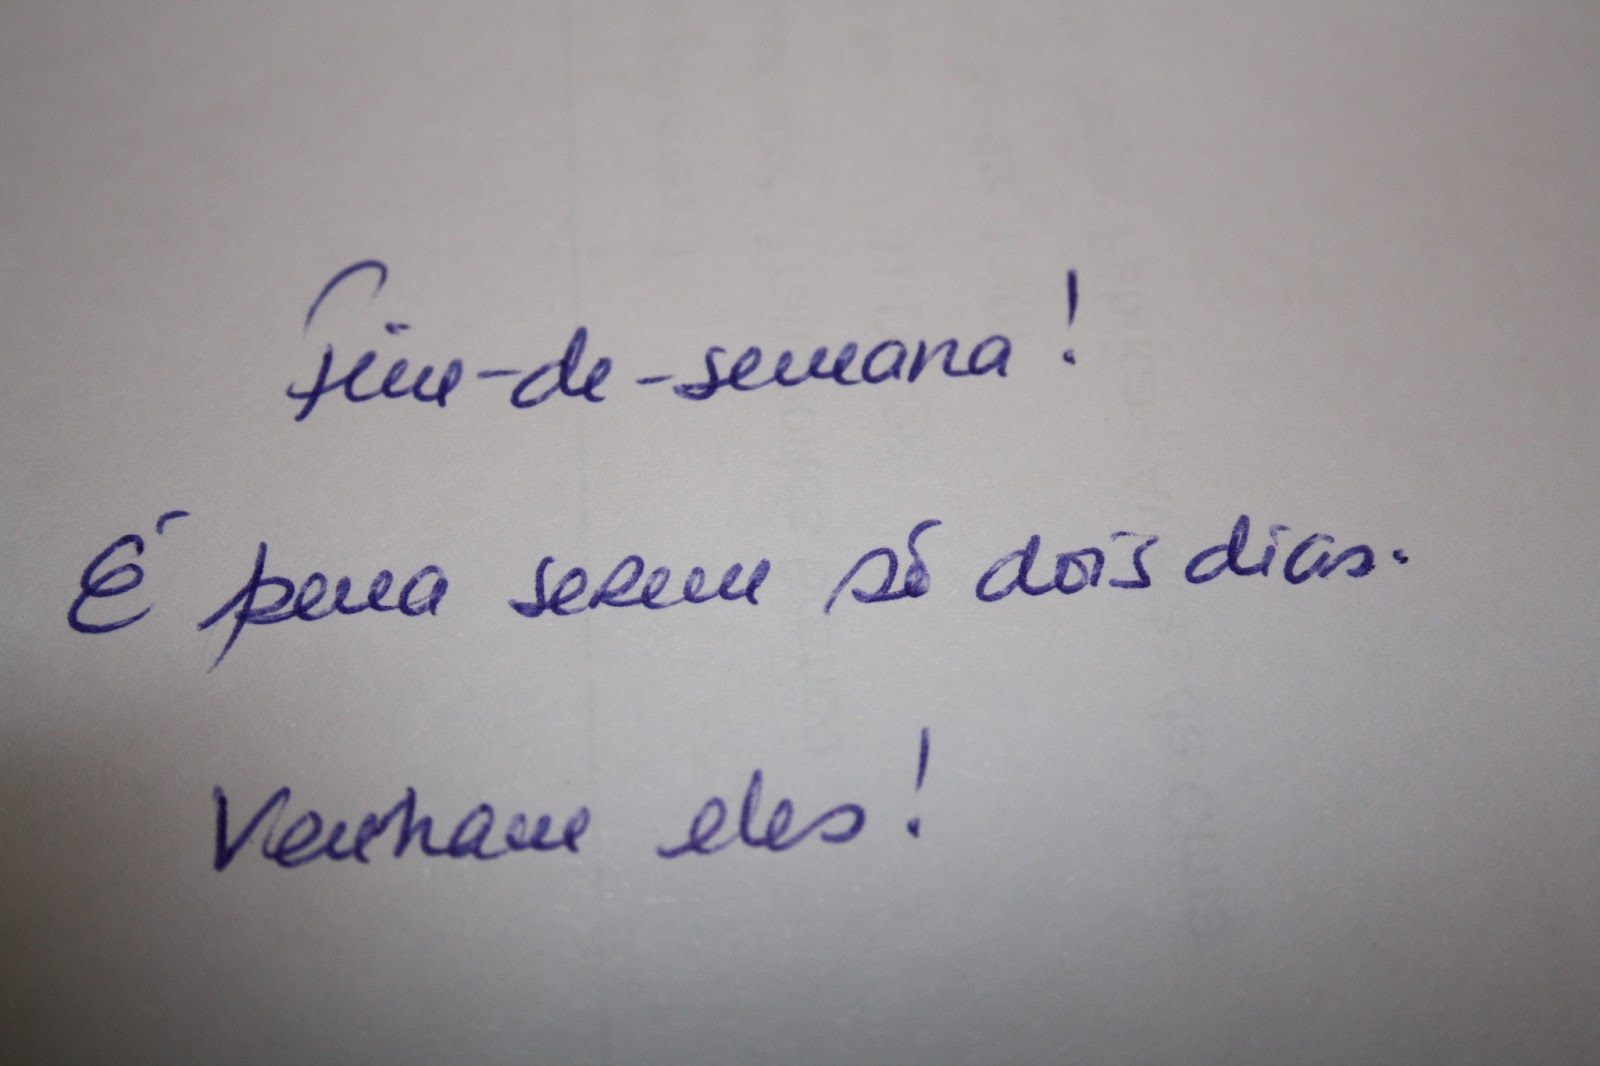 Fim-de-semana!
É pena serem só dois dias.
Venham eles!